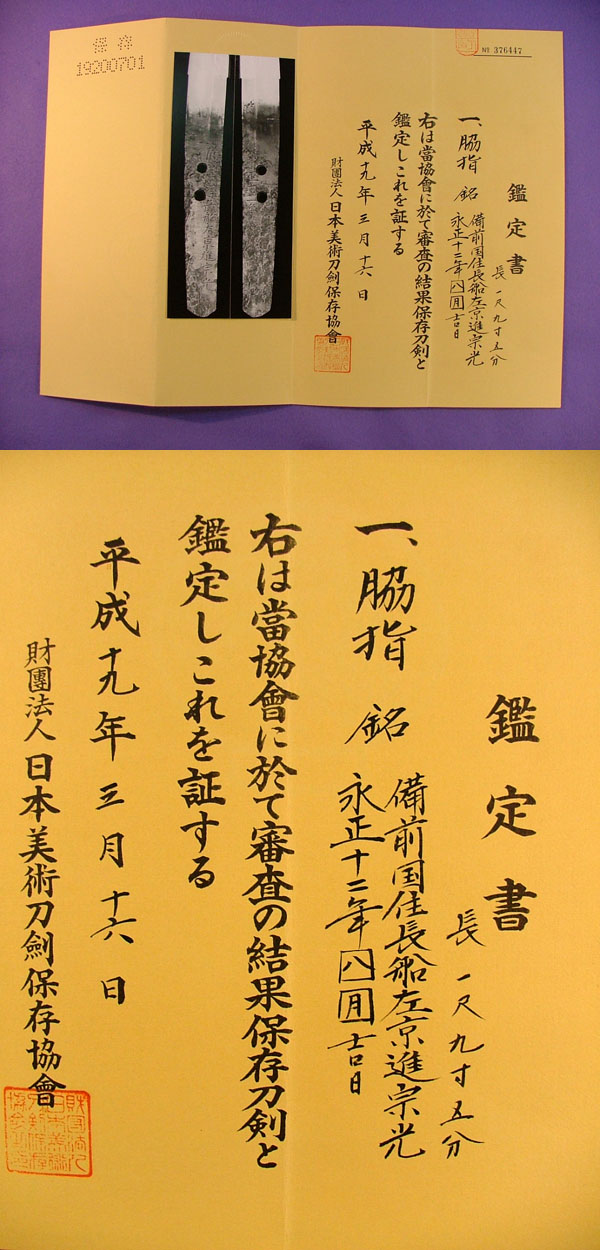 保存
19200701
No 376447
鑑定書
長一尺九寸五分
一、脇指 銘 備前国住長船左京進宗光
永正十二年八月吉日
右は當協會に於て審査の結果保存刀剣と
鑑定しこれを証する
平成十九年三月十六日
財團法人日本美術刀劍保存協會
鑑定書
長一尺九寸五分
一、脇指 銘 備前国住長船左京進宗光
永正十二年八月吉日
右は當協會に於て審査の結果保存刀剣と
鑑定しこれを証する
平成十九年三月十六日
財團法人日本美術刀劍保存協會